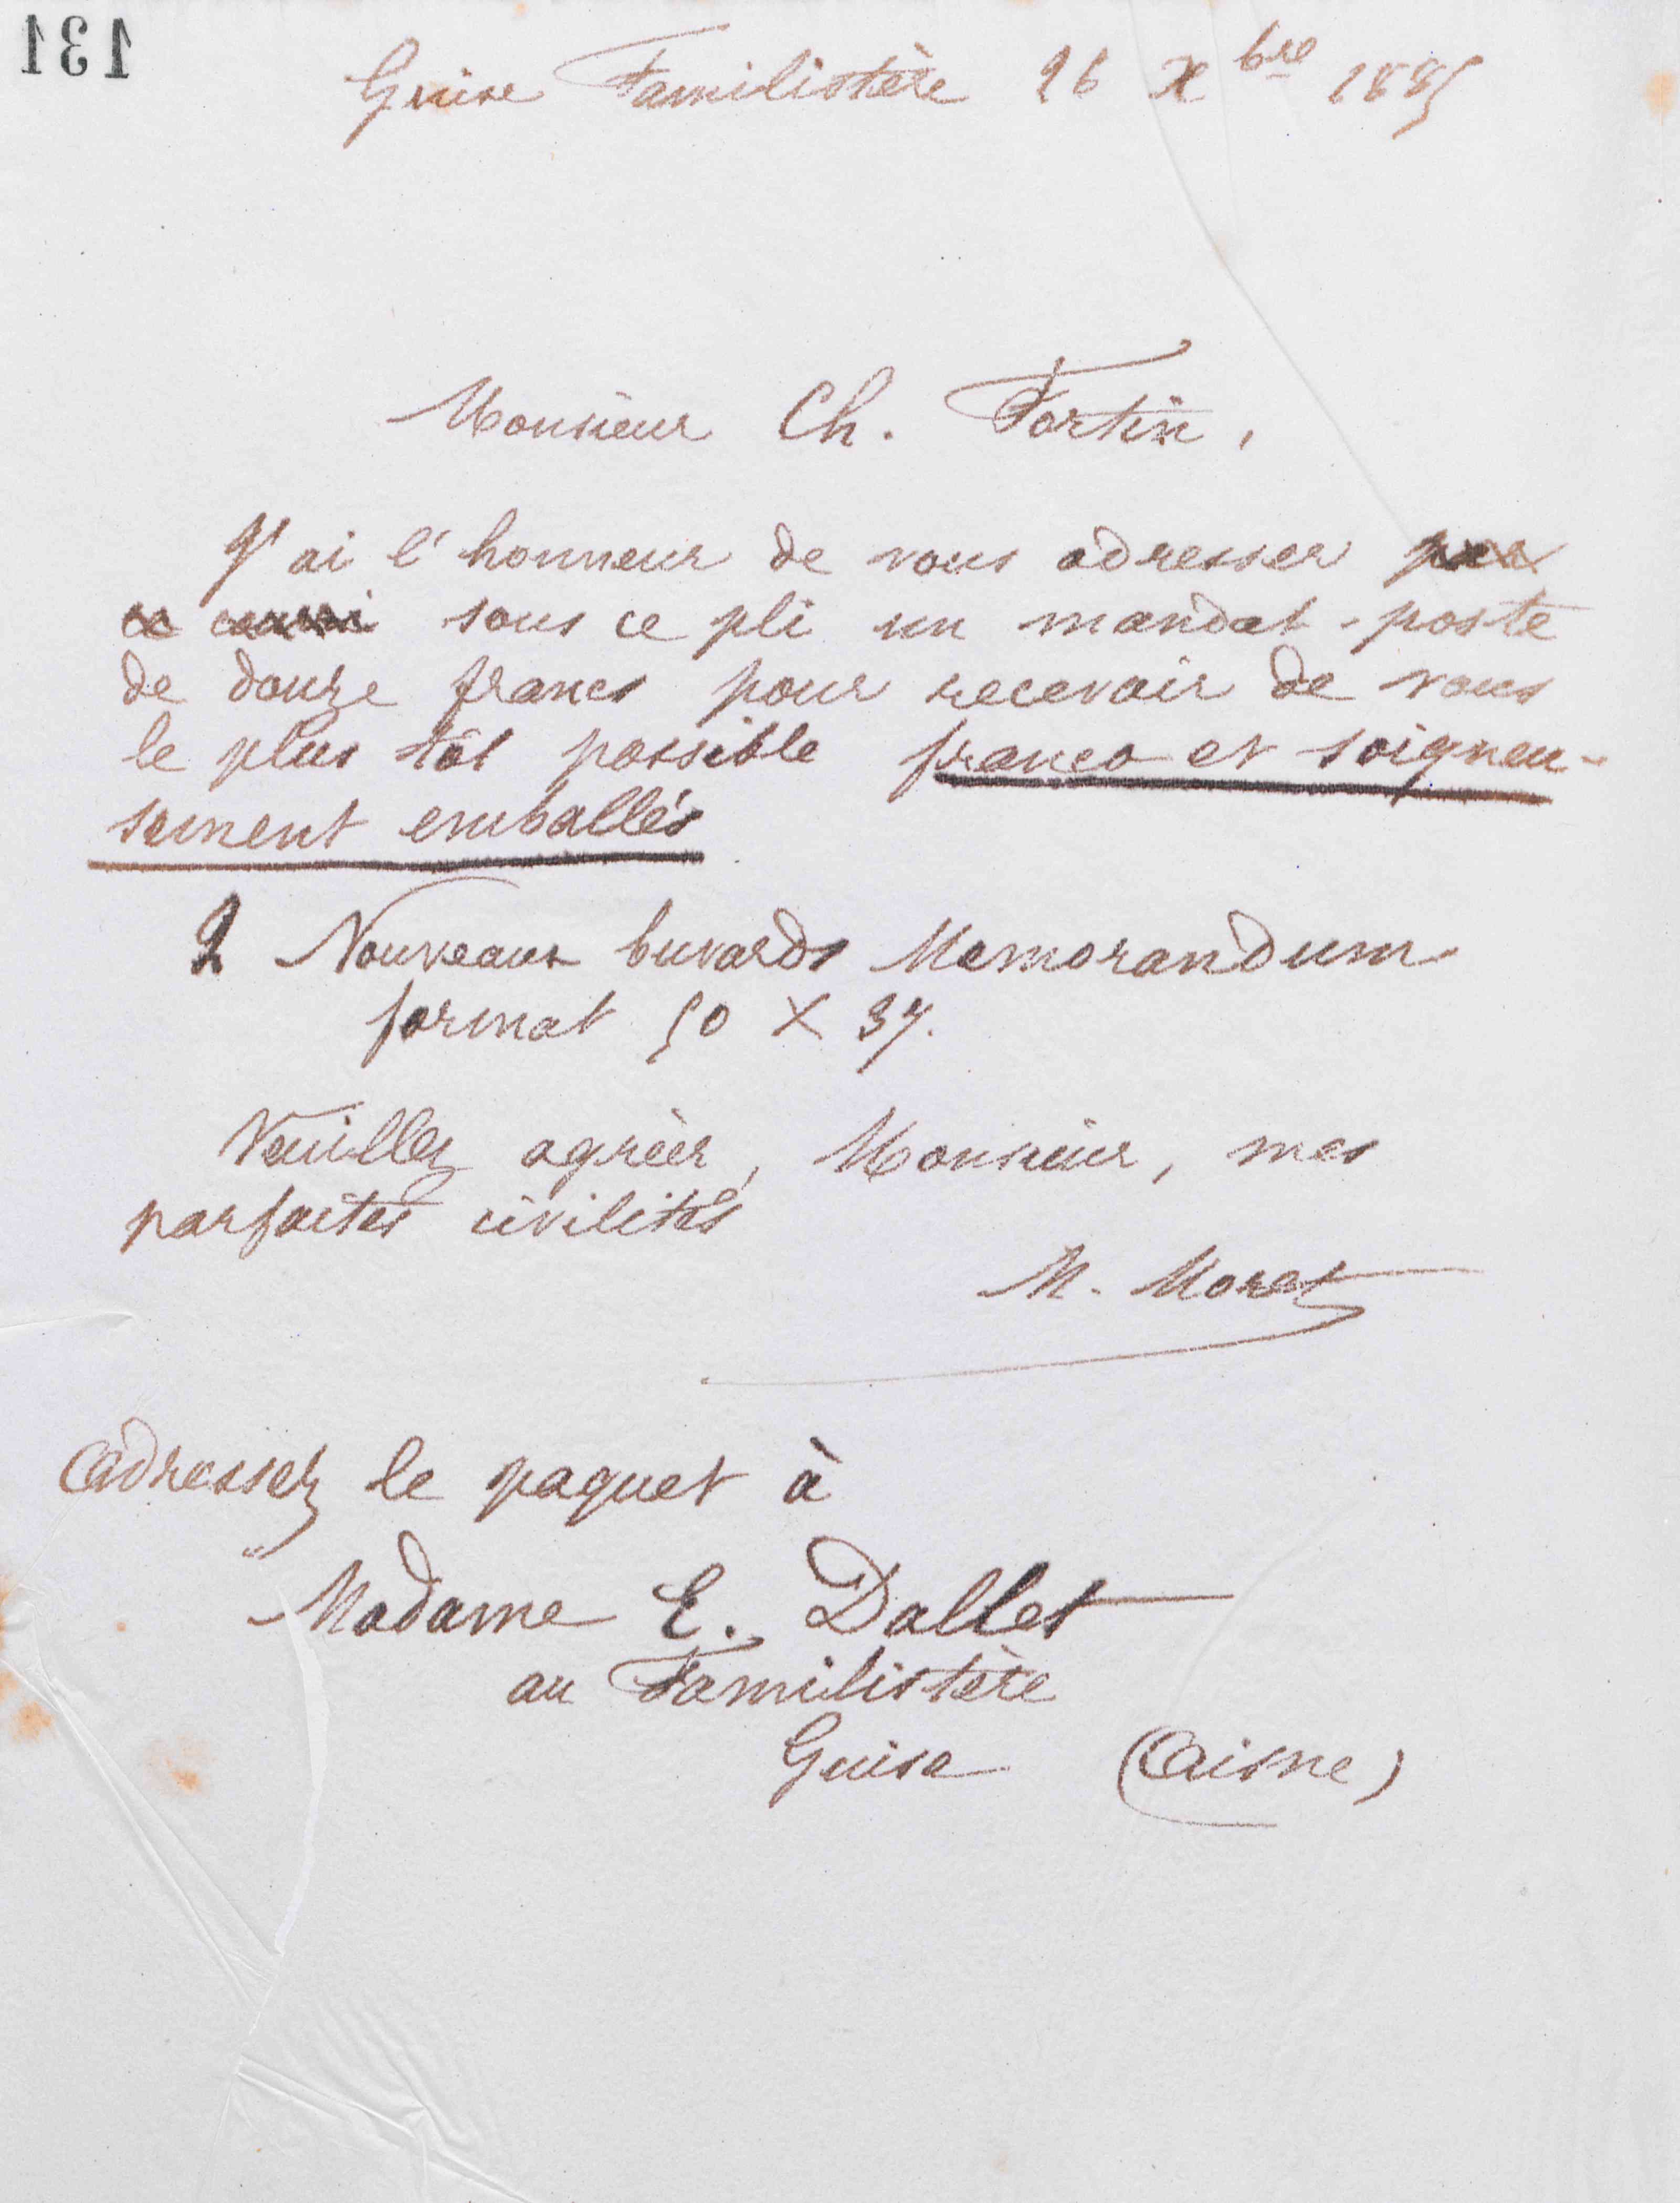 131
Guise Familistère 26 Xbre 1885
Monsieur Ch. Fortin,
J'ai l'honneur de vous adresser par
ce courri sous ce pli un mandat-poste
de douze francs pour recevoir de vous
le plus tôt possible franco et soigneu-
sement emballés
2 Nouveaux buvards Memorandum
format 50 X 37.
Veuillez agréer, Monsieur, mes
parfaites civilités
M. Moret
Adressez le paquet à
Madame E. Dallet
au Familistère
Guise (Aisne)